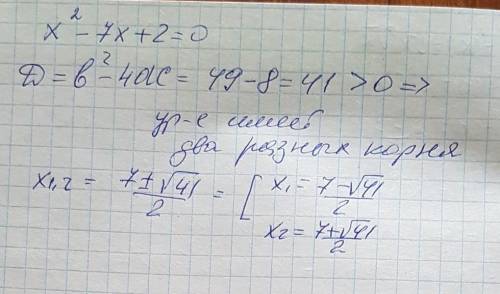 x² - 7x + 2 = 0
Д = b² - 4ac = 49 - 8 = 41 > 0 =>
ур-е имеет
два разных корня
x₁,₂ = (7 ± √41)/2 = [ x₁ = (7 - √41)/2
x₂ = (7 + √41)/2